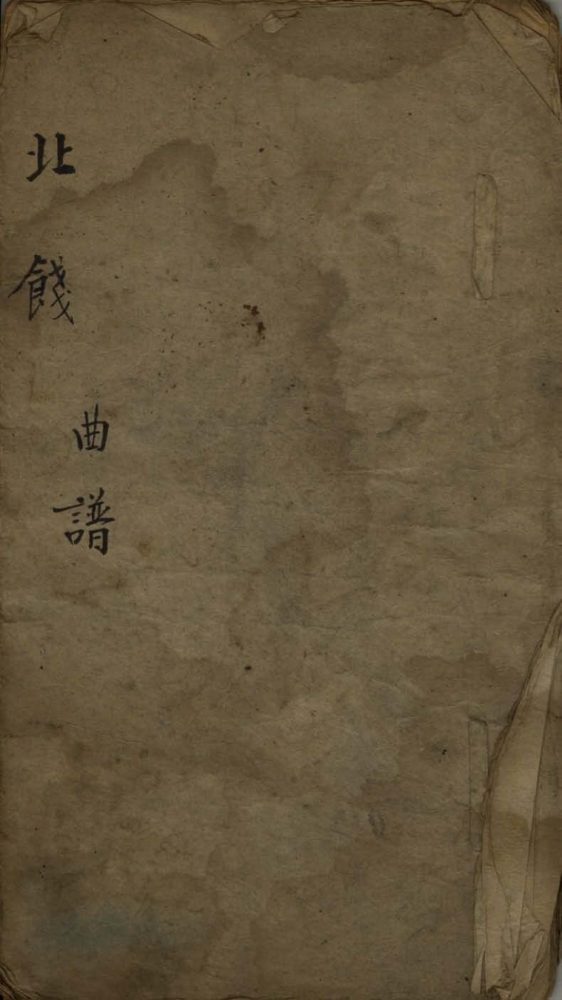 北餞
曲譜